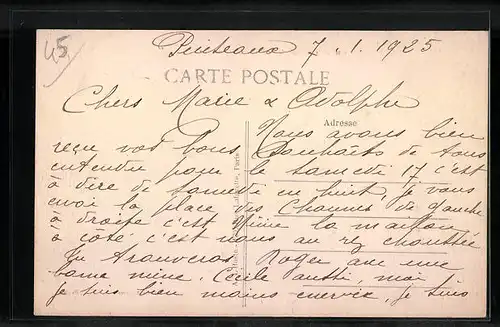 45
Puteaux 7.1.1925
CARTE POSTALE
Chers Marie & Adolphe
Adresse
Nous avons bien
reçu vos bons Souhaits de tous
entendu pour le samedi 17 c'est
à dire de samedi en huit, je vous
envoi la place des Chaumes de gauche
à droite c'est Mime la maison
à côté, c'est nous au rez chaussée
Tu trouveras Roger une
bonne mine. Cécile aussi, moi
je suis bien moins enervée, je suis